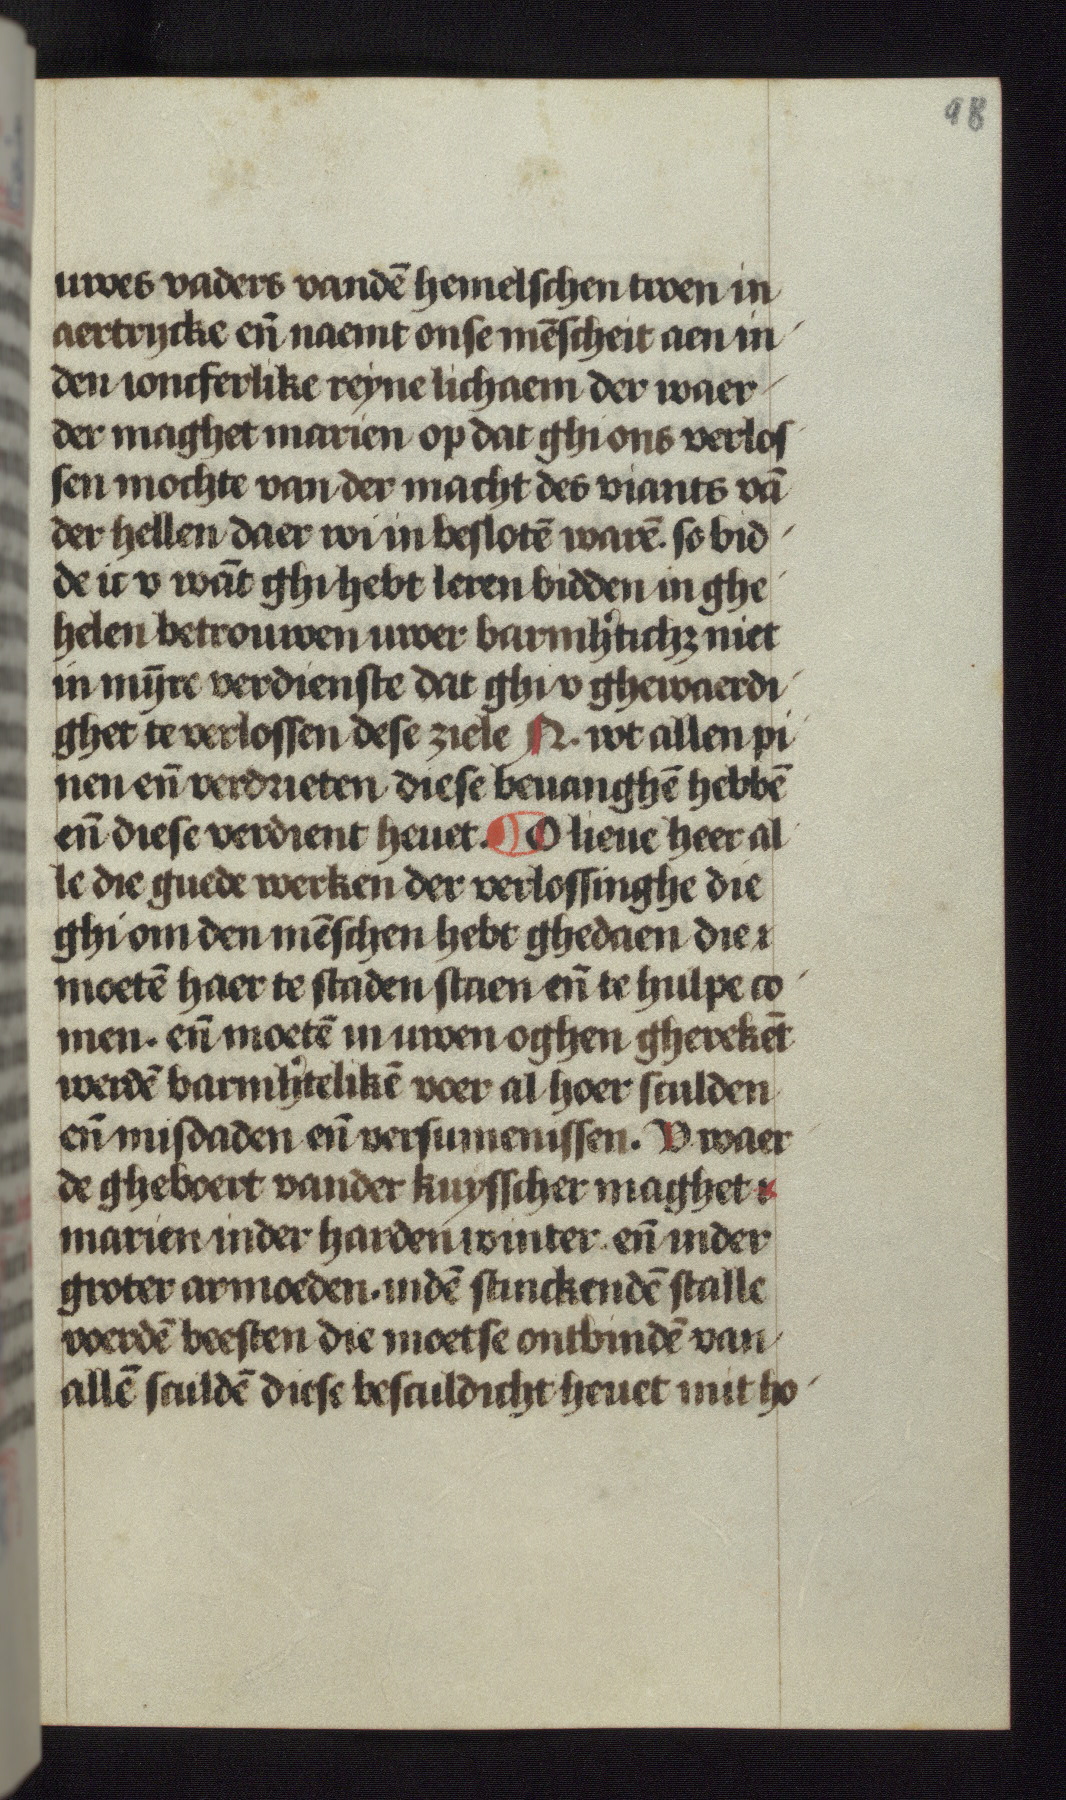 98
uwes vaders vandē hemelschen twen in
aertrycke eñ naemt onse mēscheit aen in
den ioncferlike reyne lichaem der waer
der maghet marien op dat ghi ons verlos
sen mochte van der macht des viants vā
der hellen daer wi in beslotē warē. so bid
de ic v wāt ghi hebt leren bidden in ghe
helen betrouwen uwer barmh'tichʒ niet
in mȳre verdienste dat ghi v ghewaerdi
ghet te verlossen dese ziele N. wt allen pi
nen eñ verdrieten diese beuanghē hebbē
eñ diese verdient heuet. O lieue heer al
le die guede werken der verlossinghe die
ghi om den mēschen hebt ghedaen die
moetē haer te staden staen eñ te hulpe co
men. eñ moetē in uwen oghen gherekēt
werdē barmh'telikē voer al hoer sculden
eñ misdaden eñ versumenissen. V waer
de gheboert vander kuysscher maghet
marien inder harden winter. eñ inder
groter armoeden. indē stinckendē stalle
voerdē beesten die moetse ontbindē van
allē sculdē diese besculdicht heuet mit ho